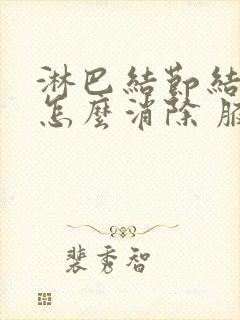 淋巴結節結
怎麼消除 腋
裴秀智